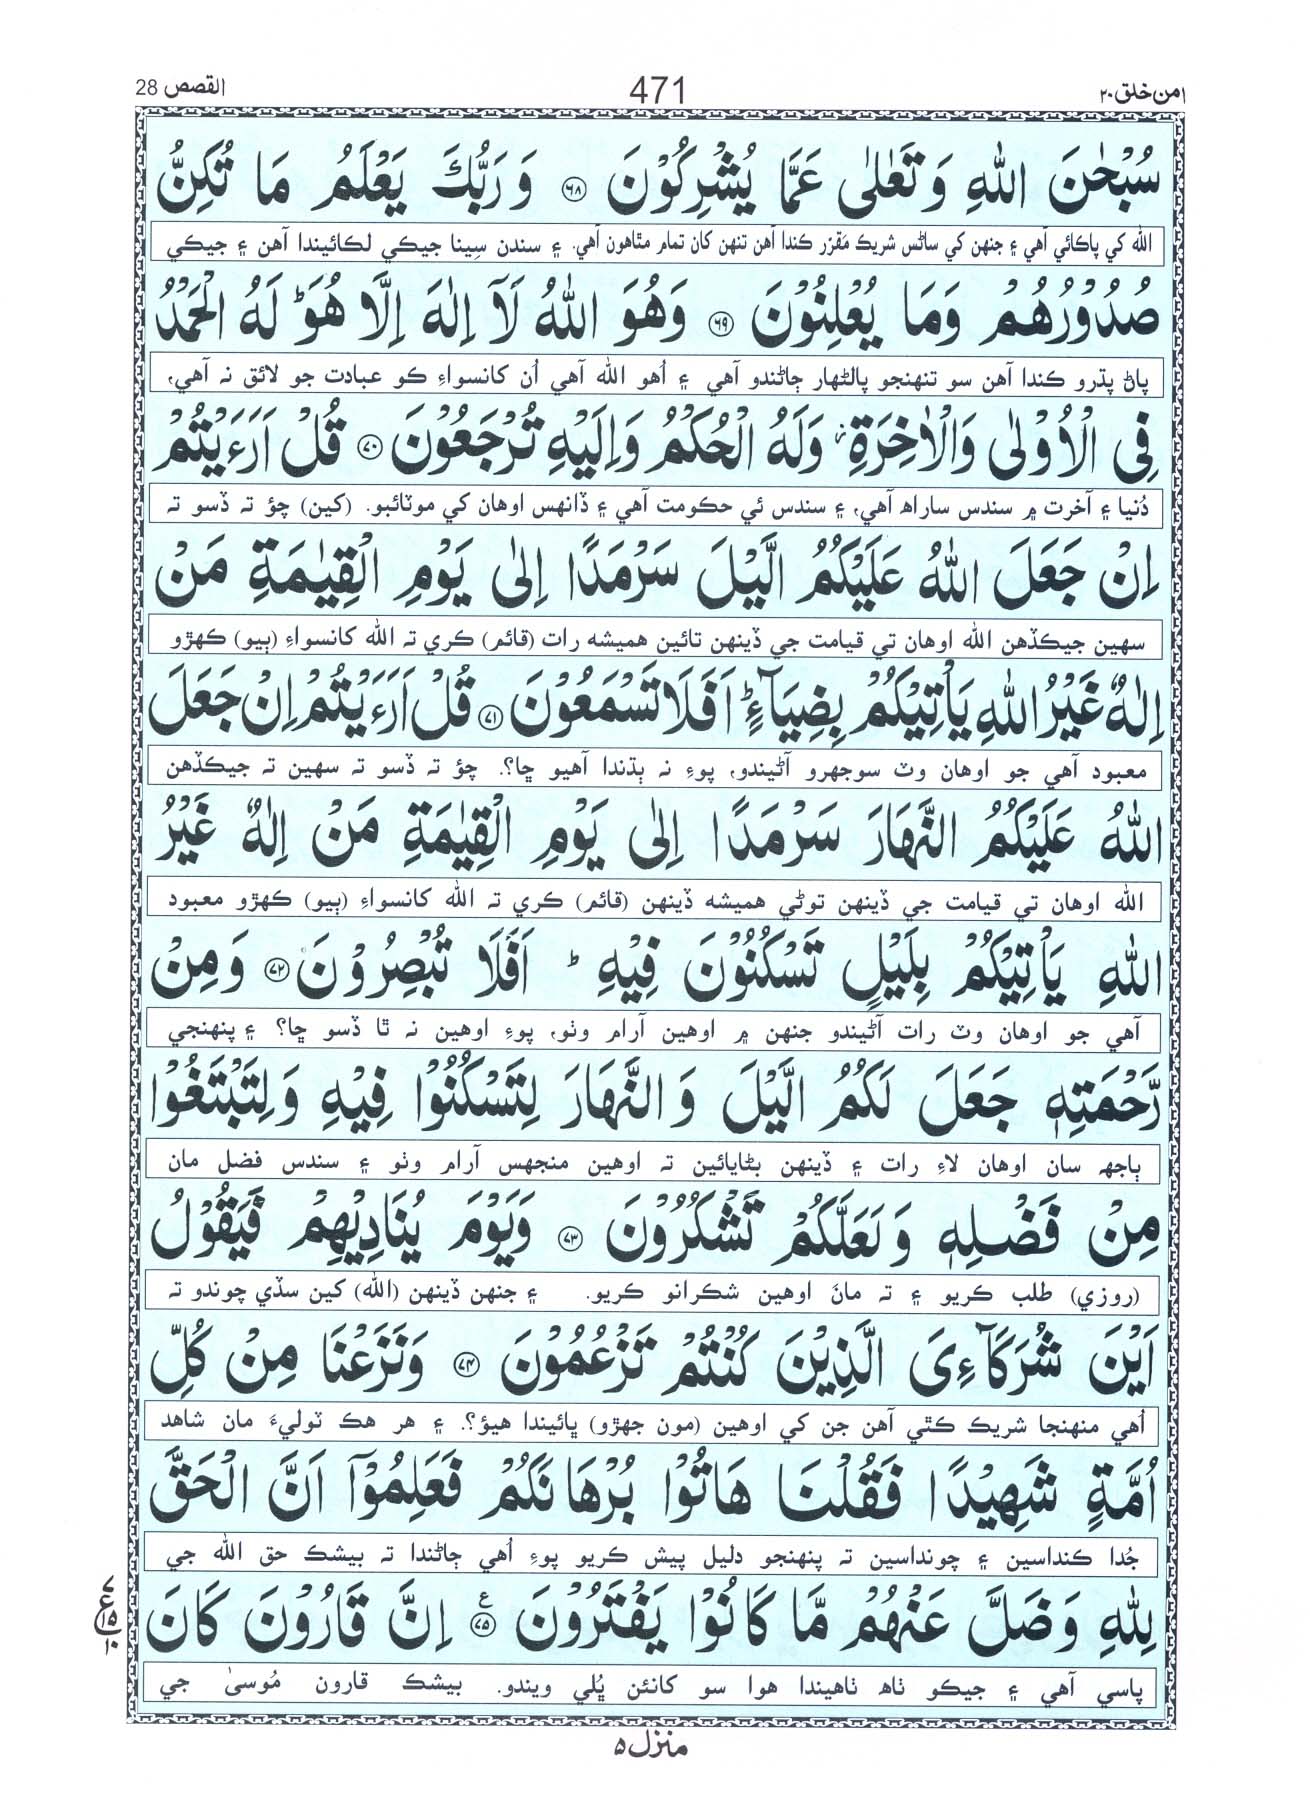 القصص 28
471
امن خلق ٢٠
سُبْحٰنَ اللّٰهِ وَ تَعٰلٰى عَمَّا يُشْرِكُوْنَ ۝۶۸ وَ رَبُّكَ يَعْلَمُ مَا تُكِنُّ
الله کي پاڪائي آهي ۽ جنهن کي ساڻس شريڪ مَقرّر ڪندا آهن تنهن کان تمام مٿاهون آهي. ۽ سندن سِينا جيڪي لڪائيندا آهن ۽ جيڪي
صُدُوْرُهُمْ وَمَا يُعْلِنُوْنَ ۝۶۹ وَهُوَ اللّٰهُ لَآ اِلٰهَ اِلَّا هُوَ ؕ لَهُ الْحَمْدُ
پاڻ پڌرو ڪندا آهن سو تنهنجو پالڻهار ڄاڻندو آهي ۽ اُهو الله آهي اُن کانسواءِ ڪو عبادت جو لائق نہ آهي،
فِى الْاُوْلٰى وَالْاٰخِرَةِ ؗ وَلَهُ الْحُكْمُ وَاِلَيْهِ تُرْجَعُوْنَ ۝۷۰ قُلْ اَرَءَيْتُمْ
دُنيا ۽ آخرت ۾ سندس ساراھ آهي، ۽ سندس ئي حڪومت آهي ۽ ڏانهس اوهان کي موٽائبو. (کين) چؤ تہ ڏسو تہ
اِنْ جَعَلَ اللّٰهُ عَلَيْكُمُ الَّيْلَ سَرْمَدًا اِلٰى يَوْمِ الْقِيٰمَةِ مَنْ
سهين جيڪڏهن الله اوهان تي قيامت جي ڏينهن تائين هميشہ رات (قائم) ڪري تہ الله کانسواءِ (ٻيو) ڪهڙو
اِلٰهٌ غَيْرُ اللّٰهِ يَاْتِيْكُمْ بِضِيَآءٍ ؕ اَفَلَا تَسْمَعُوْنَ ۝۷۱ قُلْ اَرَءَيْتُمْ اِنْ جَعَلَ
معبود آهي جو اوهان وٽ سوجهرو آڻيندو، پوءِ نہ ٻڌندا آهيو ڇا؟. چؤ تہ ڏسو تہ سهين تہ جيڪڏهن
اللّٰهُ عَلَيْكُمُ النَّهَارَ سَرْمَدًا اِلٰى يَوْمِ الْقِيٰمَةِ مَنْ اِلٰهٌ غَيْرُ
الله اوهان تي قيامت جي ڏينهن توڻي هميشہ ڏينهن (قائم) ڪري تہ الله کانسواءِ (ٻيو) ڪهڙو معبود
اللّٰهِ يَاْتِيْكُمْ بِلَيْلٍ تَسْكُنُوْنَ فِيْهِ ؕ اَفَلَا تُبْصِرُوْنَ ۝۷۲ وَمِنْ
آهي جو اوهان وٽ رات آڻيندو جنهن ۾ اوهين آرام وٺو، پوءِ اوهين نہ ٿا ڏسو ڇا؟ ۽ پنهنجي
رَّحْمَتِهٖ جَعَلَ لَكُمُ الَّيْلَ وَالنَّهَارَ لِتَسْكُنُوْا فِيْهِ وَلِتَبْتَغُوْا
ٻاجهہ سان اوهان لاءِ رات ۽ ڏينهن بڻايائين تہ اوهين منجهس آرام وٺو ۽ سندس فضل مان
مِنْ فَضْلِهٖ وَلَعَلَّكُمْ تَشْكُرُوْنَ ۝۷۳ وَيَوْمَ يُنَادِيْهِمْ فَيَقُوْلُ
(روزي) طلب ڪريو ۽ تہ مانَ اوهين شڪرانو ڪريو. ۽ جنهن ڏينهن (الله) کين سڏي چوندو تہ
اَيْنَ شُرَكَآءِىَ الَّذِيْنَ كُنْتُمْ تَزْعُمُوْنَ ۝۷۴ وَنَزَعْنَا مِنْ كُلِّ
اُهي منهنجا شريڪ ڪٿي آهن جن کي اوهين (مون جهڙو) ڀائيندا هيؤ؟. ۽ هر هڪ ٽوليءَ مان شاهد
اُمَّةٍ شَهِيْدًا فَقُلْنَا هَاتُوْا بُرْهَانَكُمْ فَعَلِمُوْٓا اَنَّ الْحَقَّ
جُدا ڪنداسين ۽ چونداسين تہ پنهنجو دليل پيش ڪريو پوءِ اُهي ڄاڻندا تہ بيشڪ حق الله جي
لِلّٰهِ وَضَلَّ عَنْهُمْ مَّا كَانُوْا يَفْتَرُوْنَ ۝۷۵ ع اِنَّ قَارُوْنَ كَانَ
٧ ع ١٥ ١٠
پاسي آهي ۽ جيڪو ٺاھ ٺاهيندا هوا سو کانئن ڀُلي ويندو. بيشڪ قارون مُوسىٰ جي
منزل ٥